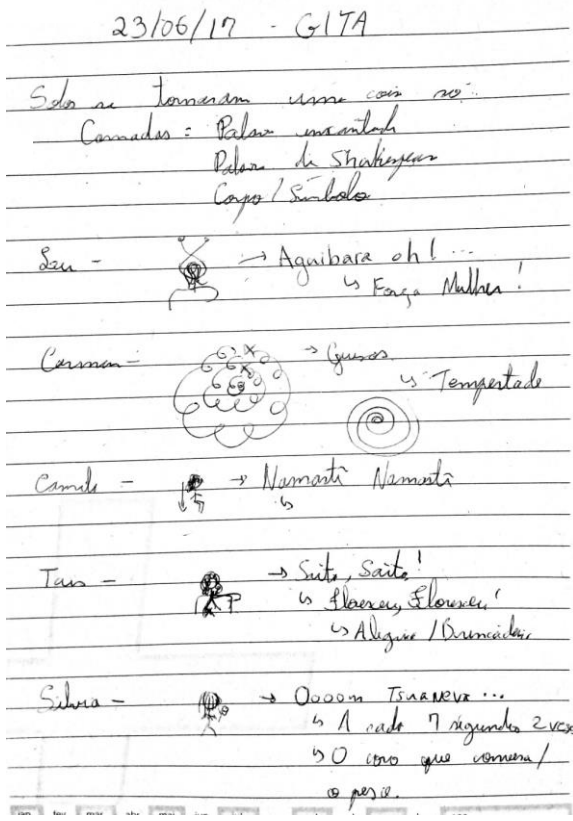 23/06/17 - GITA
Solos se tornaram uma coisa só.
Camadas = Palavra encantada
Palavra de Shakespeare
Corpo / Símbolo
Leu - → Aguibara oh! ...
↳ Força Mulher!
Carmen - → Guisos
↳ Tempestade
Camila - → Namastê Namastê
↳
Tais - → Saite, Saite!
↳ Floresceu, Floresceu!
↳ Alegria / Brincadeira
Silvia - → Oooom Tsuaneva ...
↳ A cada 7 segundos 2 vezes
↳ O coro que comersa /
o peixe.
jan fev mar abr mai jun